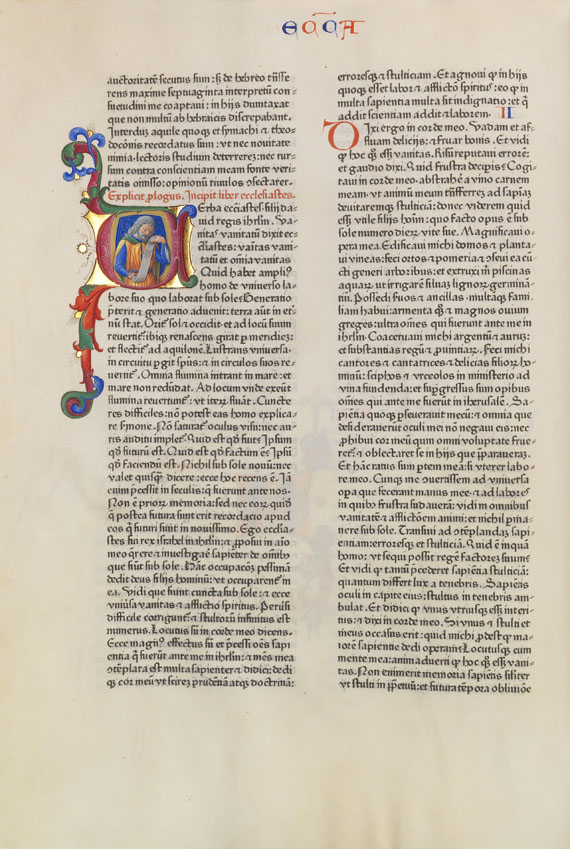 ECCA
auctoritatē secutus sum: ß de hebreo trāsfe⸗
rens maxime septuaginta interpretū con⸗
suetudini me coaptaui: in hijs dumtaxat
que non multū ab hebraicis discrepabant.
Interdū aquile quoqз et symachi et theo⸗
docōnis recordatus sum: vt nec nouitate
nimia lectoris studium deterrereз: nec rur⸗
sum contra conscientiam meam fonte veri⸗
tatis omisso: opinionū riuulos ɔsectarer.
Explicit ꝓlogus. Incipit liber ecclesiastes.
Verba eccľiastes filij da⸗
uid regis ihrľm. Va⸗
nitas vanitatū dixit ec⸗
cľiastes: vanitas vani⸗
tatū et omnia vanitas
Quid habet ampliꝰ
homo de vniuerso la⸗
bore suo quo laborat sub sole: Generatio
p̄terit et generatio aduenit: terra aūt in et⸗
nū stat. Oritꝰ sol et occidit et ad locū suum
reuertitꝰ: ibiqз renascens girat ꝑ meridieз:
et flectitꝰ ad aquilonē. Lustrans vniuersa
in circuitu ꝑgit spūs: et in circulos suos re⸗
uertitꝰ. Omnia flumina intrant in mare: et
mare non redūdat. Ad locum vnde exeūt
flumina reuertunꝰ: vt iterū fluāt. Cuncte
res difficiles: nō potest eas homo explica⸗
re ꝑmone. Nō saturatꝰ oculus visu: nec au⸗
ris auditu impletꝰ. Quid est qd̄ fuit: Ipsum
qd̄ futurū est. Quid est qd̄ factum ē: Ipsū
qd̄ faciendū est. Nichil sub sole nouū: nec
valet quisꝗ̄ dicere: ecce hoc recens ē. Iā
enim p̄cessit in seculis: ꝗ̄ fuerunt ante nos.
Non ē priorз memoria: sed nec eorз quidē
ꝗ̄ postea futura sunt erit recordacio apud
eos ꝗ̄ futuri sunt in nouissimo. Ego ecclia⸗
stes fui rex israhel in ihrľm: et ꝓposui in aīo
meo q̄rere et inuestigare sapiēter de omībꝰ
que fiūt sub sole. Hāc occupacōeз pessimam
dedit deus filijs hominū: vt occuparentꝰ in
ea. Vidi que fiunt cuncta sub sole: et ecce
vniūsa vanitas et afflictio spiritus. Peruſi
difficile corrigunꝰ: et stultorū infinitus est
numerus. Locutus sū in corde meo dicens.
Ecce magnꝰ effectus sū et p̄cessi oēs sapi
entia ꝗ̄ fuerūt ante me in ihrľm: et mēs mea
ɔtēplata est multa sapienter et didici: dedi
qз cor meū vt scireз prudētiā atqз doctrinā:
erroresqз et stulticiam. Et agnoui qꝫ in hijs
quoqз esset labor et afflictō spiritus: eo qꝫ in
multa sapientia multa sit indignatio: et ꝗ̄
addit scientiam addit et laborem. II
Dixi ergo in corde meo. Vadam et af⸗
fluam delicijs: et fruar bonis. Et vidi
qꝫ hoc qz esset vanitas. Risū reputaui errorē:
et gaudio dixi. Quid frustra decipis: Cogi
taui in corde meo abstrahē a vino carnem
meam: vt animū meum trāsferreз ad sapiāз
deuitaremqз stulticiam: donec viderem quid
esset vtile filijs hoīm: quo facto opus ē sub
sole numero dierз vite sue. Magnificaui o⸗
pera mea. Edificaui michi domos et planta⸗
ui vineas: feci ortos et pomeria et ꝯseui ea cū
cti generi arboribus: et extruxi m̄ piscinas
aquarз: vt irrigarē siluaз lignorз germinā⸗
tiū. Possedi suos et ancillas: multāqз fami⸗
liam habui: armenta qз et magnos ouium
greges: vltra omēs qui fuerunt ante me in
ihrľm. Coaceruaui michi argentū et auruз:
et substantias regū et ꝓuintiarз. Feci michi
cantores et cantatrices et delicias filiorз ho⸗
minū: sciphos et vrceolos in ministerio ad
vina fundenda: et supgressus sum opibus
omēs qui ante me fuerūt in iherusalē. Sa⸗
piētia quoqз ꝑseuerauit mecū: et omnia que
desiderauerūt oculi mei nō negaui eis: nec
ꝓhibui cor meū quin omni voluptate frue⸗
retꝰ: et oblectaret se in hijs que ip̄araueraз.
Et hāc ratus sum ꝑtem mea: si vterer labo⸗
re meo. Cunqз me ɔuertissem ad vniuersa
oꝑa que fecerant manus mee: et ad labores
in quibꝰ frustra sudauerā: vidi in omnibus
vanitatē et afflictōem animi: et nichil ꝑma⸗
nere sub sole. Transiui ad ɔtēplandaз sapi⸗
entiam: erroresqз et stulticiā. Quid ē inquā
homo: vt sequi possit regē factorez suum:
Et vidi qꝫ tantū p̄cederet sapiētia stulticiā:
quantum differt lux a tenebris. Sapiētis
oculi in capite eius: stultus in tenebris am⸗
bulat. Et didici qꝫ vnus vtrusqз esset interi⸗
tus: et dixi in corde meo. Si vnus et stulti et
meus occasus erit: quid michi ꝓdest qꝫ ma⸗
iorē sapientie dedi operam: Locutusqз cum
mente mea: animaduerti qꝫ hoc qз esset vani⸗
tas. Non enim erit memoria sapiētis similiter
vt stulti in ꝑpetuū: et futura tēpora obliuiōe